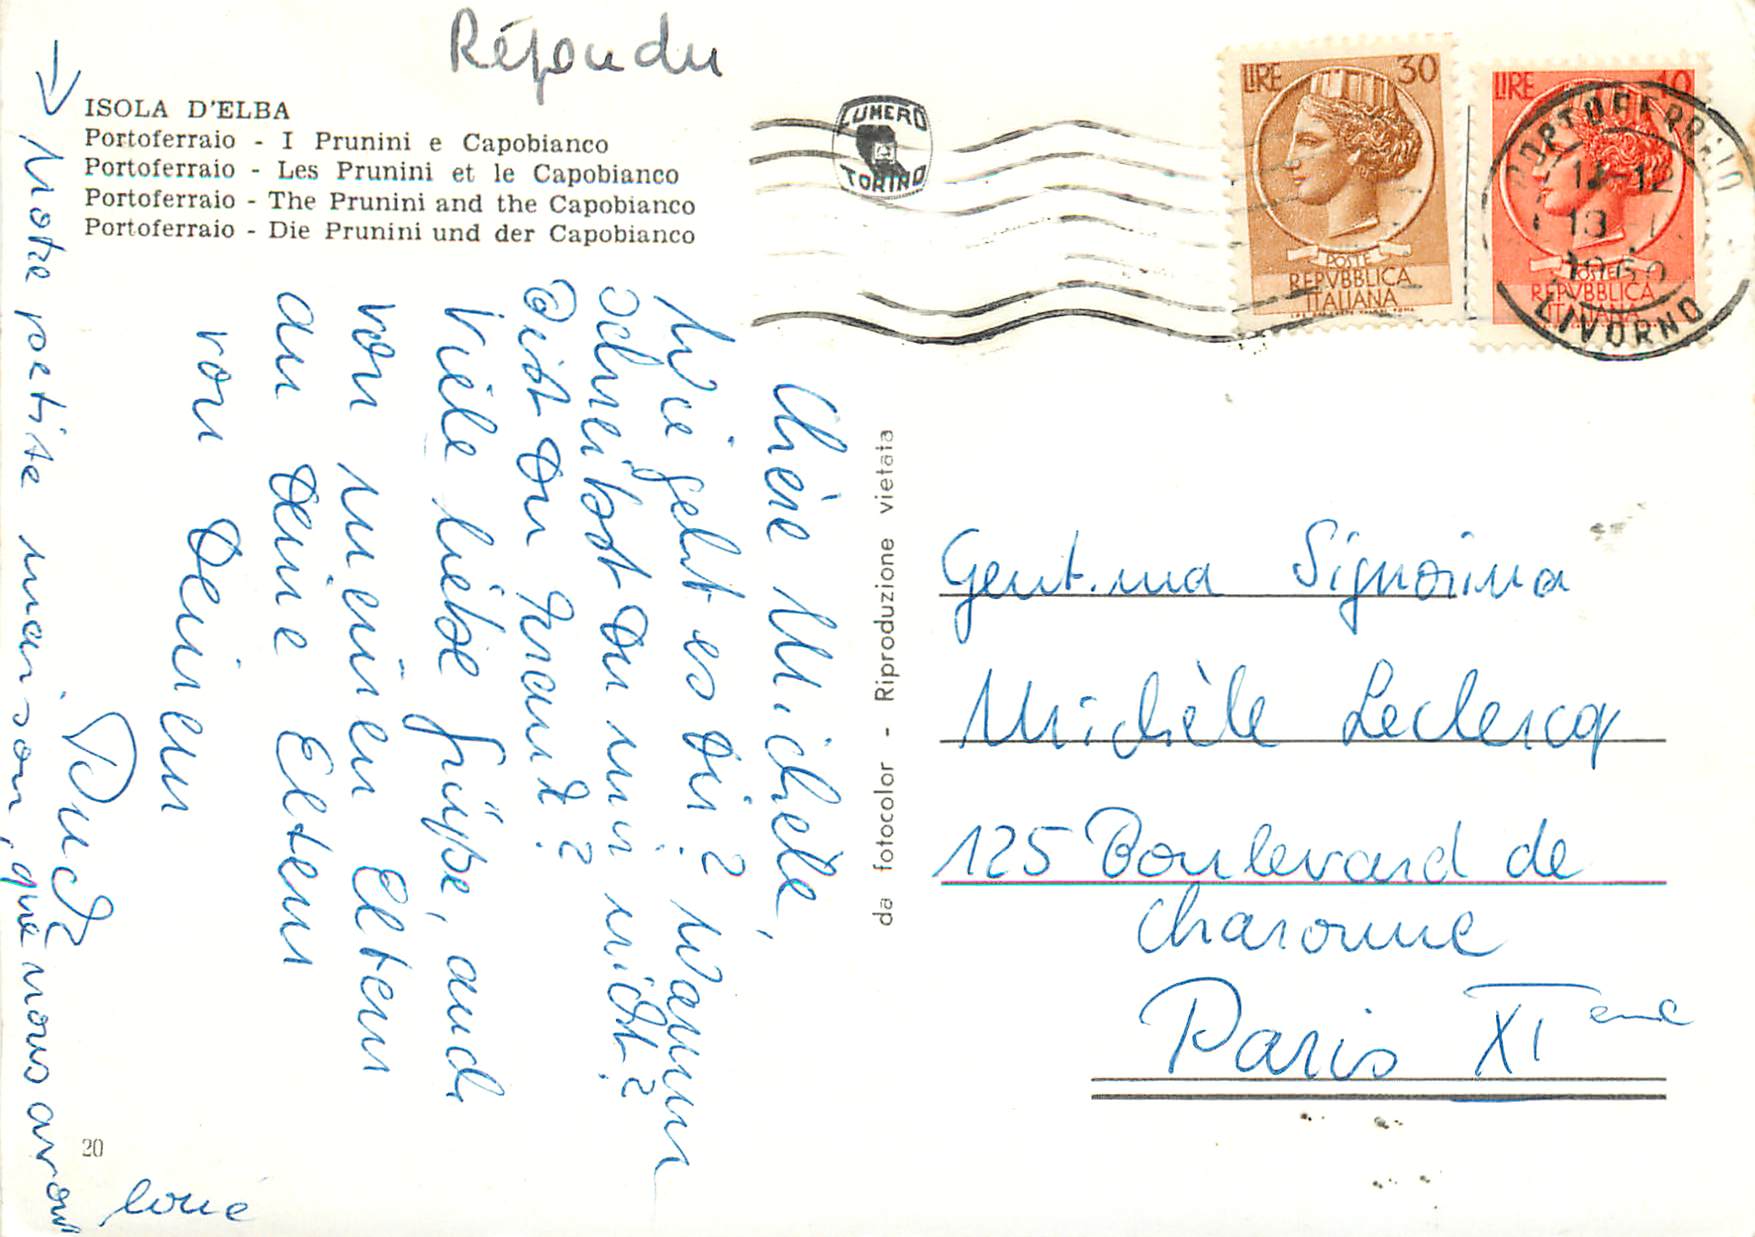 Répondu
ISOLA D'ELBA
Portoferraio - I Prunini e Capobianco
Portoferraio - Les Prunini et le Capobianco
Portoferraio - The Prunini and the Capobianco
Portoferraio - Die Prunini und der Capobianco
Chère Michèle,
Wie geht es Dir? Warum
schreibst Du mir nicht?
Bist Du krank?
Viele liebe Grüße, auch
von meinen Eltern
an Deine Eltern
von Deinem
→ Notre petite maison, que nous avons
loué
20
da fotocolor - Riproduzione vietata
NUMERO
TORINO
LIRE 30
POSTE
REPVBBLICA
ITALIANA
LIRE 10
POSTE
REPVBBLICA
ITALIANA
PORTOFERRAIO
LIVORNO
Gent.ma Signorina
Michèle Leclercq
125 Boulevard de
Charonne
Paris XIeme